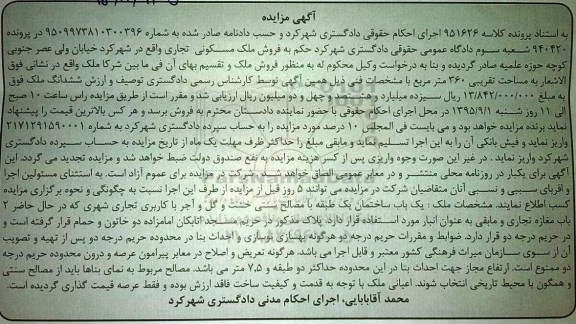 آگهی مزایده
به استناد پرونده کلاسه ۹۵۱۶۲۶ اجرای احکام حقوقی دادگستری شهرکرد و حسب دادنامه صادر شده به شماره ۹۵۰۹۹۷۳۸۱۰۳۰۰۳۹۶ در پرونده
۹۴۰۴۲۰ شعبه سوم دادگاه عمومی حقوقی دادگستری شهرکرد حکم به فروش ملک مسکونی تجاری واقع در شهرکرد خیابان ولی عصر جنوبی
کوچه حوزه علمیه صادر گردیده و بنا به درخواست وکیل محکوم له به منظور فروش ملک و تقسیم بهای آن فی ما بین شرکا ملک واقع در نشانی فوق
الاشعار به مساحت تقریبی ۳۶۰ متر مربع با مشخصات فنی ذیل همین آگهی توسط کارشناس رسمی دادگستری توصیف و ارزش ششدانگ ملک فوق
به مبلغ ۱۳/۸۴۲/۰۰۰/۰۰۰ ریال سیزده میلیارد و چهل و دو میلیون ریال ارزیابی شد و مقرر است از طریق مزایده راس ساعت ۱۰ صبح
الی ۱۱ روز شنبه ۱۳۹۵/۹/۱ در محل اجرای احکام حقوقی با حضور نماینده دادستان محترم به فروش برسد و هر کس بالاترین قیمت را پیشنهاد
نماید برنده مزایده خواهد بود و می بایست فی المجلس ۱۰ درصد مورد مزایده را به حساب سپرده دادگستری شهرکرد به شماره ۲۱۷۱۲۹۱۵۹۰۰۰۱
واریز نماید و فیش بانکی آن را به این اجرا تسلیم نماید و مابقی مبلغ را حداکثر ظرف مهلت یک ماه از تاریخ مزایده به حساب سپرده دادگستری
شهرکرد واریز نماید . در غیر این صورت وجوه واریزی پس از کسر هزینه مزایده به نفع صندوق دولت ضبط خواهد شد و مزایده تجدید می گردد. این
آگهی برای یکبار در روزنامه محلی منتشر و در معابر عمومی الصاق خواهد شد شرکت در مزایده برای عموم آزاد است. به استثنای مسئولین اجرا
و اقربای سببی و نسبی آنان متقاضیان شرکت در مزایده می توانند ۵ روز قبل از مزایده از طرف این اجرا نسبت به چگونگی و نحوه برگزاری مزایده
کسب اطلاع نمایند. مشخصات ملک : یک باب ساختمان یک طبقه با مصالح سنتی خشت و گل و آجر با کاربری تجاری شهری که در حال حاضر ۲
باب مغازه تجاری و مابقی به عنوان انبار مورد استفاده قرار دارد. پلاک مذکور در حریم مسجد اتابکان امامزاده دو خاتون و حمام قرار گرفته است و
در حریم درجه دو قرار دارد. ضوابط و مقررات حریم درجه دو هرگونه بهسازی نوسازی و احداث بنا در محدوده حریم درجه دو پس از تهیه و تصویب
آن از سوی سازمان میراث فرهنگی کشور معتبر و قابل اجرا می باشد. هرگونه تعریض و اصلاح در معابر پیرامون عرصه و درون محدوده حریم درجه
دو ممنوع است. ارتفاع مجاز جهت احداث بنا در این محدوده حداکثر دو طبقه و ۷.۵ متر می باشد. مصالح مربوط به نمای بناها باید از مصالح سنتی
و همگون با محیط تاریخی انتخاب شوند. اعیانی ملک با توجه به قدمت و کیفیت ساخت فاقد ارزش بوده و فقط عرصه قیمت گذاری گردیده است.
محمد آقابابایی، اجرای احکام مدنی دادگستری شهرکرد